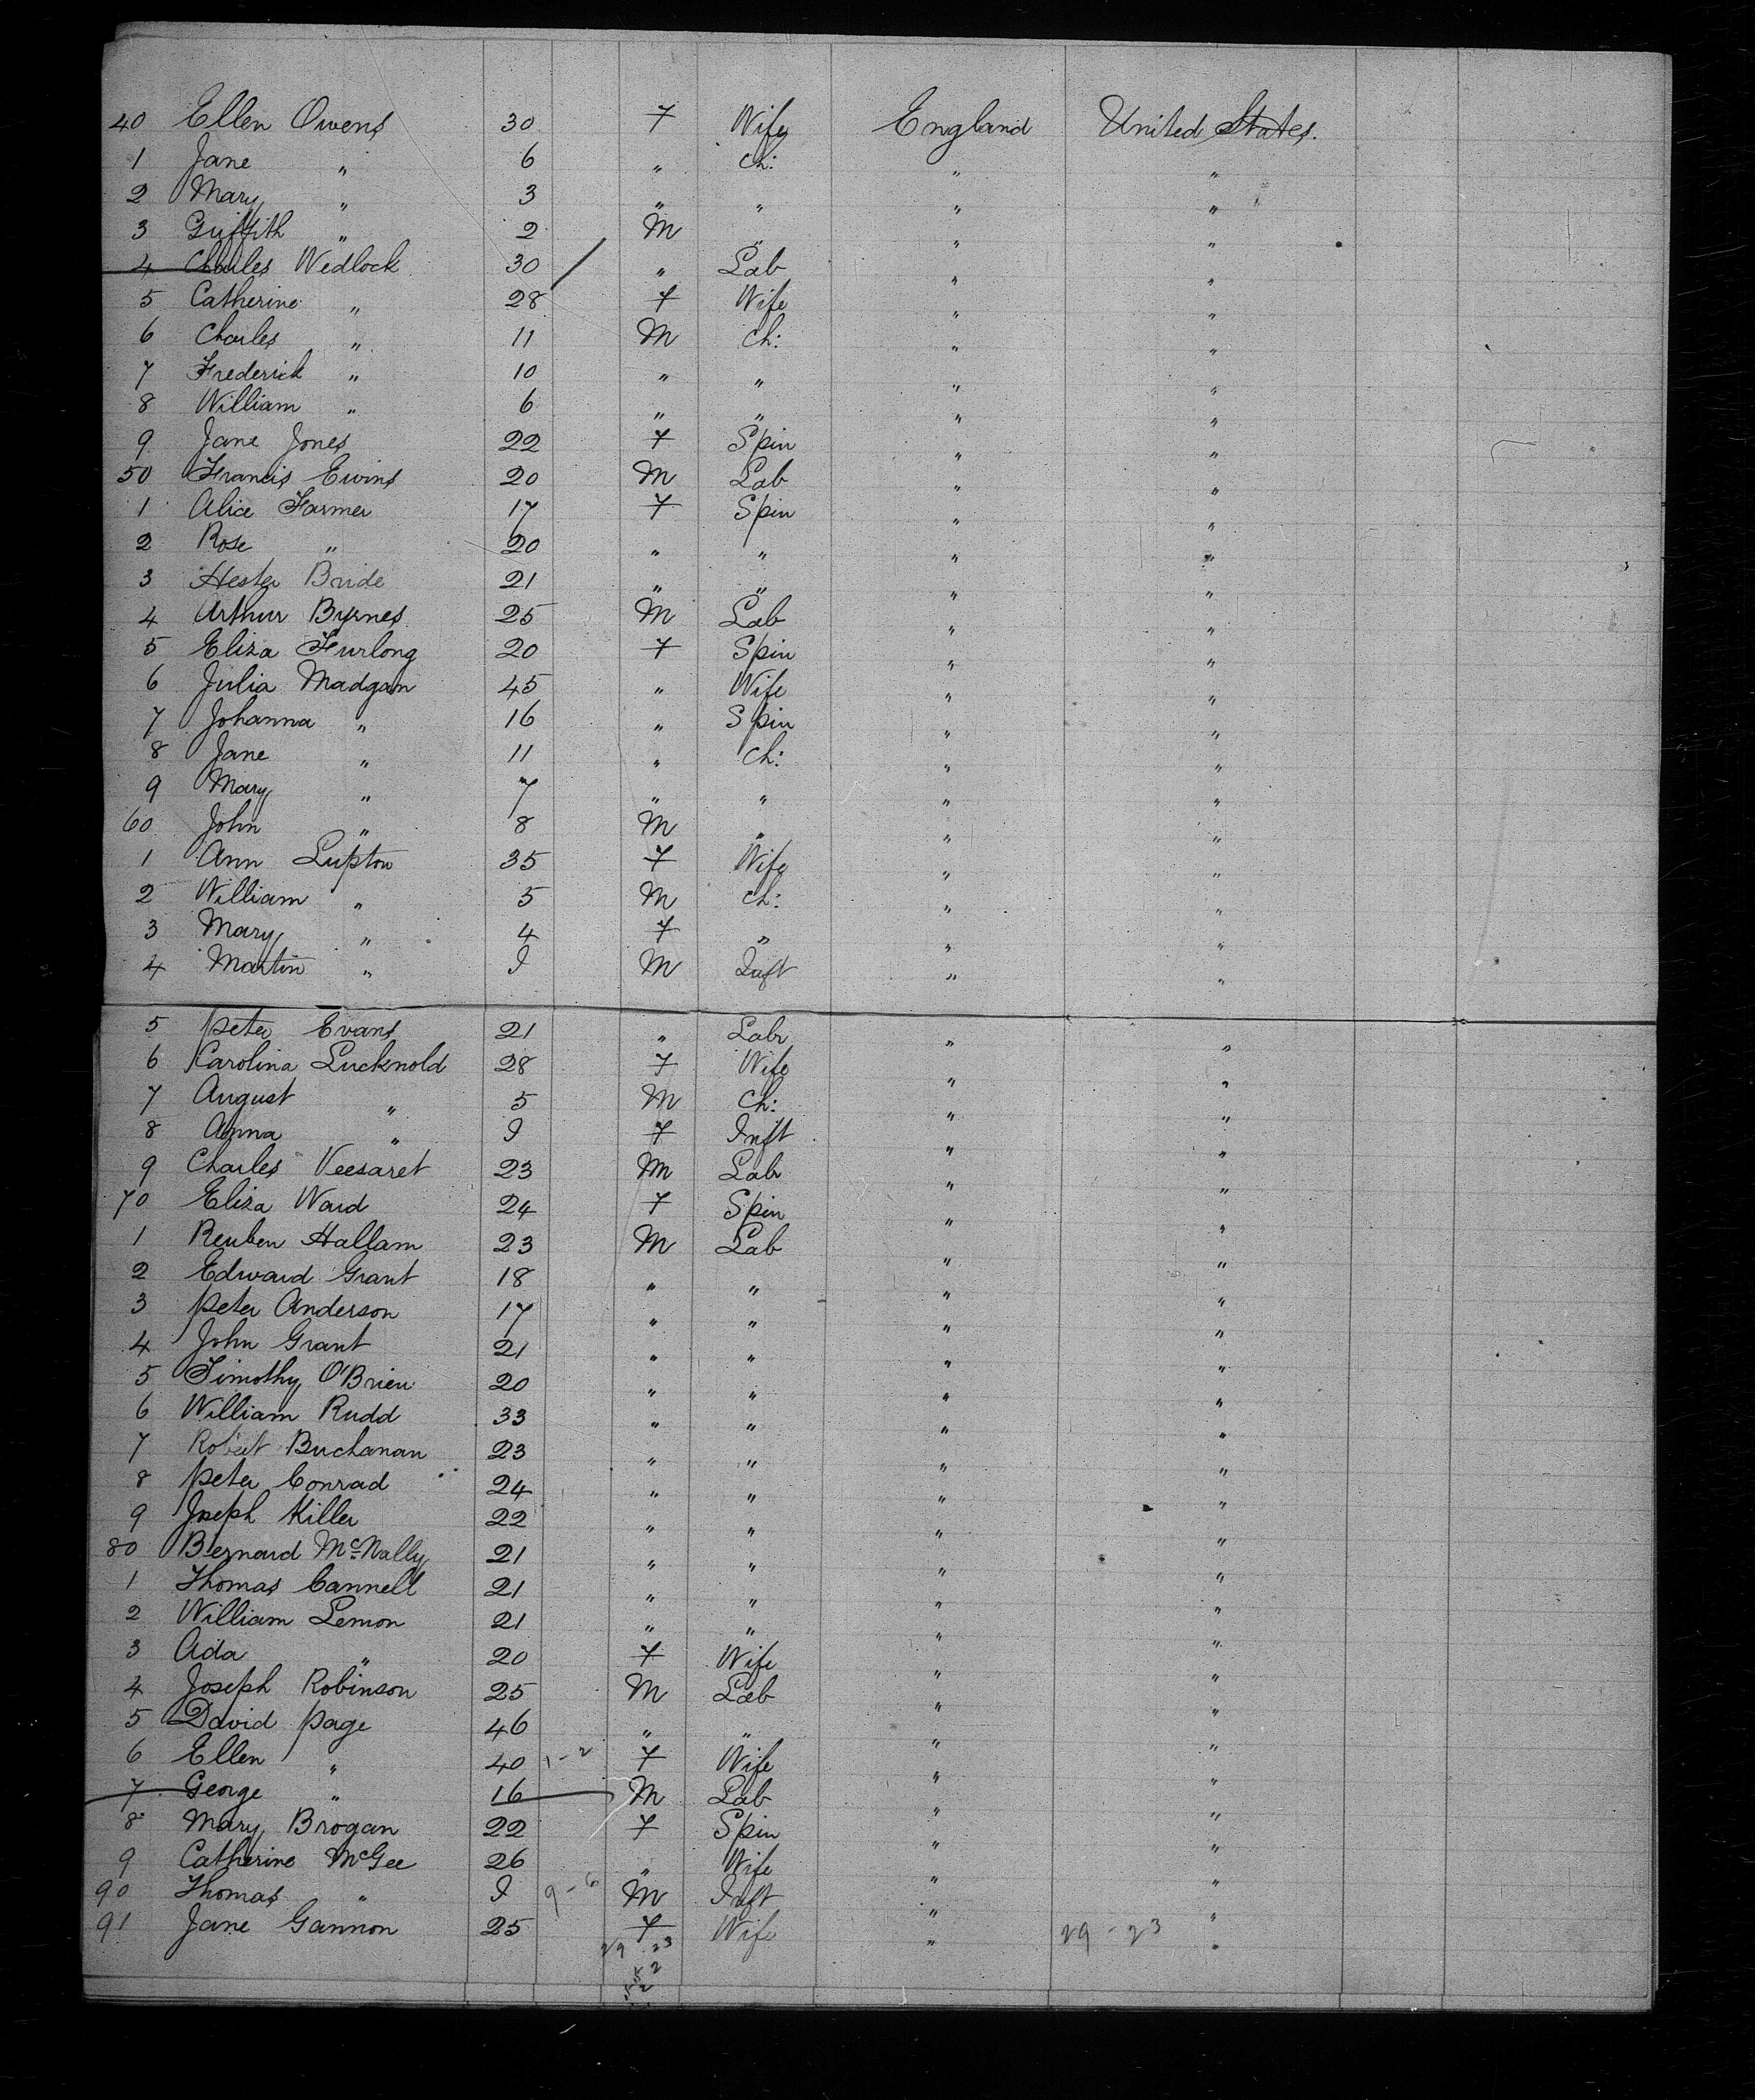 40 Ellen Owens 30 F Wife England United States.
1 Jane " 6 " Ch: " "
2 Mary " 3 " " " "
3 Griffith " 2 M " " "
4 Charles Wedlock 30 " Lab " "
5 Catherine " 28 F Wife " "
6 Charles " 11 M Ch: " "
7 Frederick " 10 " " " "
8 William " 6 " " " "
9 Jane Jones 22 F Spin " "
50 Francis Ewins 20 M Lab " "
1 Alice Farmer 17 F Spin " "
2 Rose " 20 " " " "
3 Hester Bride 21 " " " "
4 Arthur Byrnes 25 M Lab " "
5 Eliza Furlong 20 F Spin " "
6 Julia Madgan 45 " Wife " "
7 Johanna " 16 " Spin " "
8 Jane " 11 " Ch: " "
9 Mary " 7 " " " "
60 John " 8 M " " "
1 Ann Lupton 35 F Wife " "
2 William " 5 M Ch: " "
3 Mary " 4 F " " "
4 Martin " I M Inft " "
5 Peter Evans 21 " Labr " "
6 Carolina Lucknold 28 F Wife " "
7 August " 5 M Ch: " "
8 Anna " I F Inft " "
9 Charles Veesaret 23 M Lab " "
70 Eliza Ward 24 F Spin " "
1 Reuben Hallam 23 M Lab " "
2 Edward Grant 18 " " " "
3 Peter Anderson 17 " " " "
4 John Grant 21 " " " "
5 Timothy O'Brien 20 " " " "
6 William Rudd 33 " " " "
7 Robert Buchanan 23 " " " "
8 Peter Conrad 24 " " " "
9 Joseph Killer 22 " " " "
80 Bernard McNally 21 " " " "
1 Thomas Cannell 21 " " " "
2 William Lemon 21 " " " "
3 Ada " 20 F Wife " "
4 Joseph Robinson 25 M Lab " "
5 David Page 46 " " " "
6 Ellen " 40 1-2 F Wife " "
7 George " 16 M Lab " "
8 Mary Brogan 22 F Spin " "
9 Catherine McGee 26 " Wife " "
90 Thomas " I 9-6 M Inft " "
91 Jane Gannon 25 F Wife " 29-23 "
29 23